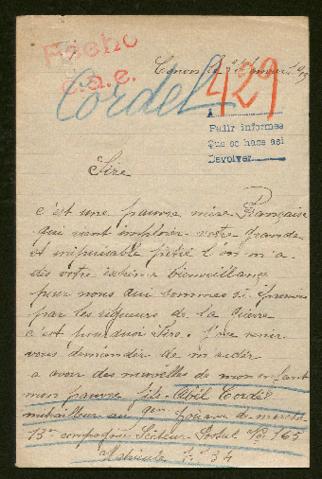 Fecho
c.a.e.
Cordel 429
Cenon le
A
Pedir informes
Que se hace así
Devolver
Sire
c'est une pauvre mère Française
qui vient implorer votre grande
et inépuisable pitié l'on m'a
dis votre extrême bienveillance
pour nous qui sommes si
par les rigueurs de la guerre
c'est pourquoi Sire. J'ose venir
vous demander de m'aider
a avoir des nouvelles de mon enfant
mon pauvre fils Abel Cordel
mitrailleur au
13e compagnie Secteur Postal No 165
Matricule 34